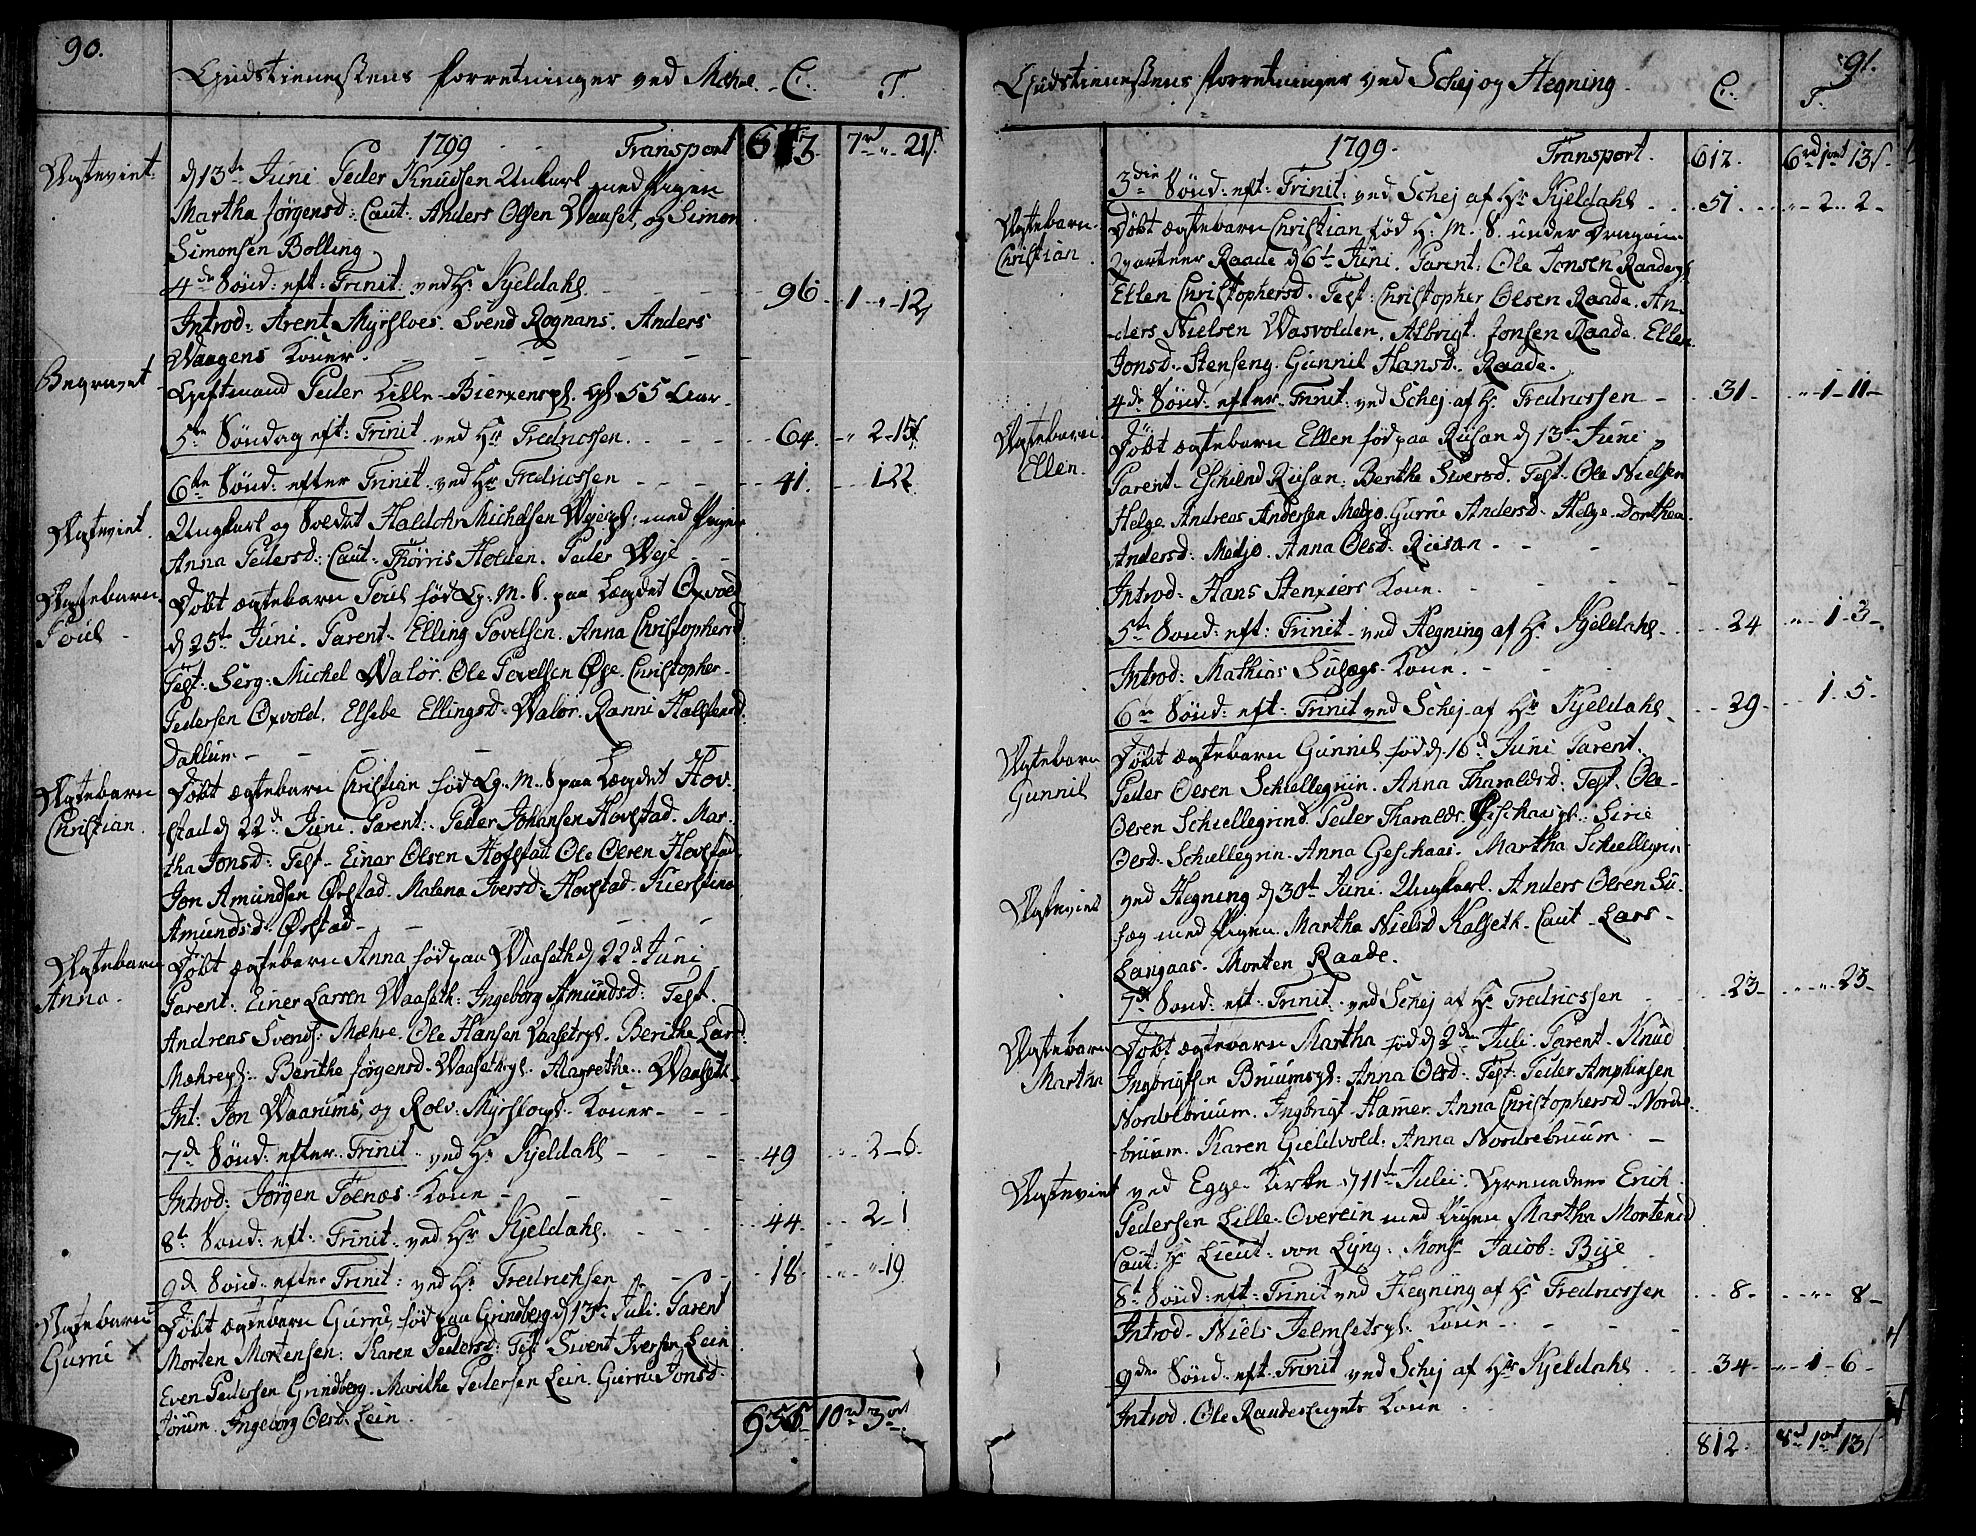 90.
Gudstienestens forretninger ved Mehre. C. T.
1799 Transport 643. 7rd „ 21s
Ægteviet. d 13de Juni Peder Knudsen Unkarl med Pigen
Martha Jørgensd: Caut: Anders Olsen Waaset, og Simon
Simonsen Bolling
4de Sønd: eft: Trinit: ved Hr Kjeldahl. 96 1 „ 12
Introd: Arent Myrsloes. Svend Rognans. Anders
Waagens Koner.
Begravet Giftmand Peder Lille-BierxensPl. gl. 55 Aar
5te Søndag eft: Trinit ved Hr Fredricssen. 64. „ 2 15
6te Sønd: efter Trinit ved Hr Fredricssen 41. 1 22
Ægteviet. Ungkarl og Soldat Haldohr Michelsen Wejepl: med Pigen
Anna Pedersd: Caut: Thørris Holden. Peder Weje
Ægtebarn Døbt ægtebarn Poul fød Lg. M. S. paa Lægdet Oxvold
Poul d 25te Juni. Parent- Elling Povelsen. Anna Christophersd
Test: Serg: Michel Waløer. Ole Povelsen Øse. Christopher
Pedersen Oxvold. Elsebe Ellingsd. Waløer. Ranni Halstensd:
Dahlum
Ægtebarn Døbt ægtebarn Christian fød Lg. M. S paa Lægdet Hov-
Christian. stad d 22d Juni. Parent: Peder Johansen Hovstad. Mar-
tha Jonsd: Test- Einar Olsen Hofstad Ole Olsen Hovstad
Jon Amundsen Ørstad. Malena Iversd: Hovstad. Kierstina
Amundsd: Ørstad
Ægtebarn Døbt ægtebarn Anna fød paa Waaseth d 22d Juni
Anna. Parent. Einer Larsen Waaseth: Ingeborg Amundsd: Test.
Andreas Svends: Mæhre. Ole Hansen Vaasetspl. Berithe Larsd:
Mæhrepl: Berithe Jørgensd. Waasethspl. Magrethe Waaseth
Int: Jon Waarums, og Rolv: Myrstorpl. Koner
7de Sønd: efter Trinit ved Hr Kjeldahl 49 2 6.
Introd: Jørgen Toenæs Kone
8t Sønd: eft: Trinit ved Hr Kjeldahl. 44. 2 1
9de Sønd: efter Trinit: ved Hr Fredrichsen 18. „ 19
Ægtebarn Døbt ægtebarn Gurue, fød paa Grindberg d 13te Juli. Parent
Gurui Morten Mortensen: Karen Pedersd: Test Sivert Iversen Lein
Even Pedersen Grindberg. Marithe Pedersen Lein. Gurru Jonsd.
Jørum. Ingeborg Olsd. Lein.
955 10rd 3ort
91.
Gudstienestens forretninger ved Schej og Hegning C. T.
1799. Transport. 612. 6rd 1ort 13s.
3die Sønd: eft: Trinit: ved Schej af Hr Kjeldahl 51 „ 2 2
Ægtebarn. Døbt ægtebarn Christian fød L: M. S. under Dragon-
Christian. Qvarteer Raade d 6t Juni. Parent: Ole Jonsen Raadespl
Ellen Christophersd. Test: Christopher Olsen Raade. An-
ders Nielsen Wasvolden. Albrigt Jonsen Raade. Ellen
Jonsd. Stenseng. Gunnil Hansd. Raade.
4de Sønd efter Trinit ved Schej af Hr Fredricssen 31 „ 1 11
Ægtebarn Døbt ægtebarn Ellen fød paa Riisan d 13te Juni
Ellen. Parent- Eschild Riisan. Berithe Siversd. Test- Ole Nielsen
Helge Andreas Andersen Medjo. Gurue Andersd. Helge. Dorthea
Andersd: Medjo. Anna Olsd. Riisan
Introd: Hans Stenxiers Kone
5te Sønd: eft: Trinit: ved Hegning af Hr Kjeldahl 24 „ 1 3
Introd: Mathias Sulægs Kone.
6te Sønd: eft: Trinit ved Schej af Hr Kjeldahl 29 1 5
Ægtebarn Døbt ægtebarn Gunnil fød d 16d Juni Parent.
Gunnil Peder Olsen Schiellegrin. Anna Tharaldsd: Test. Ole
Olsen Schiellegrind Peder Tharalds: Geschaaspl: Sirie
Olsd. Schiellegrin. Anna Geschaas. Martha Schiellegrin
Ægteviet ved Hegning d 30t Juni. Ungkarl. Anders Olsen Su-
læg med Pigen Martha Nielsd Kalseth. Caut- Lars
Langaas. Morten Raade.
7d Sønd: eft: Trinit: ved Schej af Hr Fredricssen 23 „ 23
Ægtebarn Døbt ægtebarn Martha fød d 2den Juli. Parent. Knud
Martha Ingbrigtsen Bruumspl: Anna Olsd: Test: Peder Amphinsen
Nordrebruum. Ingbrigt Hamer. Anna Christophersd Nordre-
bruum. Karen Gieldvold. Anna Nordrebruum
Ægteviet ved Egge Kirke d 11te Julii. Grenadeer Erich
Pedersen Lille-Overein med Pigen Martha Mortensd
Caut: Hr Lieut: von Lÿng: Monsr Jacob: Bye
8t Sønd: eft: Trinit ved Hegning af Hr Fredricssen 8 „ 8
Introd- Niels Jelmsetspl: Kone
9de Sønd: eft Trinit ved Schej af Hr Kjeldahl 34 „ 1 6
Introd. Ole Raades Kone
812. 8rd 1ort 13s